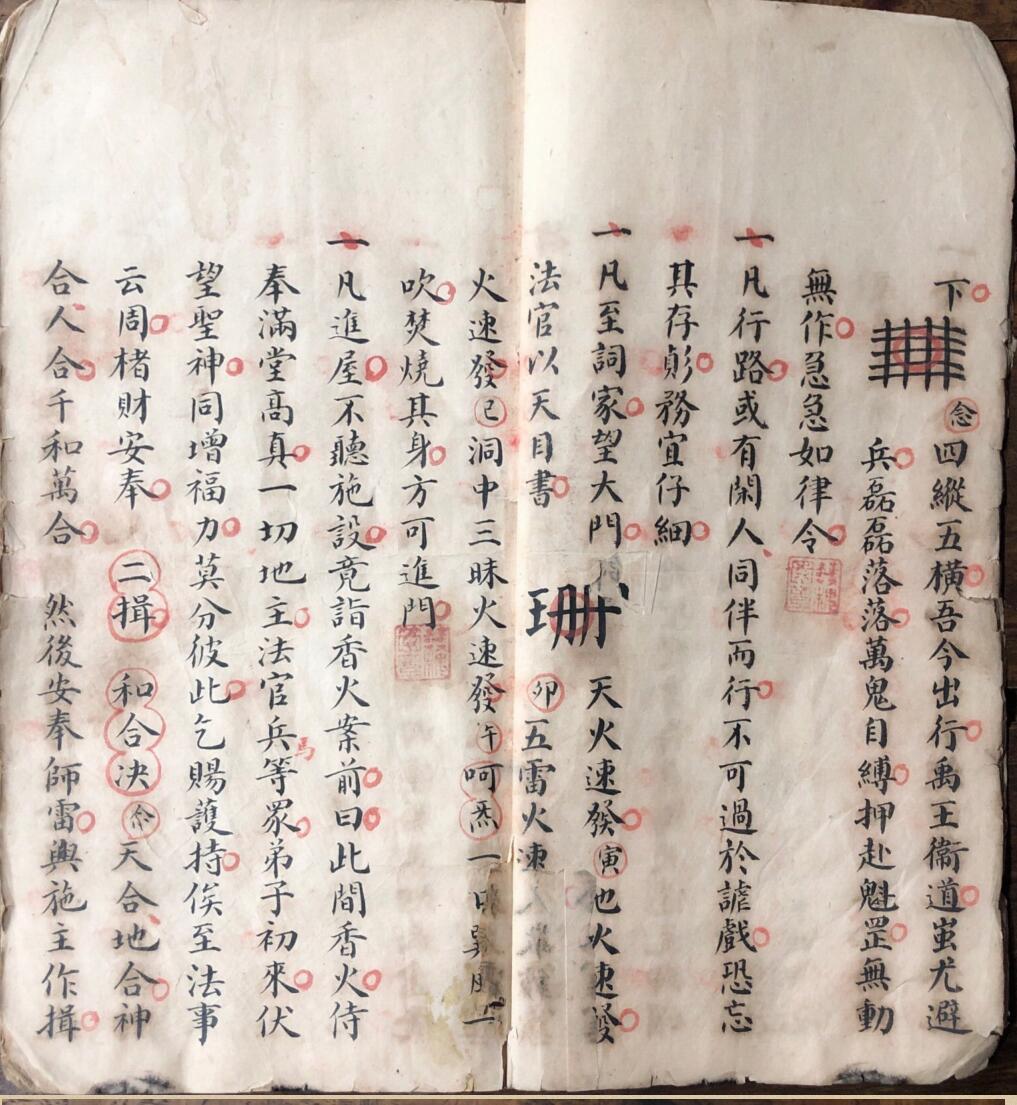 下 念四縱五橫吾今出行禹王衞道蚩尤避
兵磊磊落落萬鬼自縛押赴魁罡無動
無作急急如律令
一凡行路或有閑人同伴而行不可過於謔戲恐忘
其存彰務宜仔細
一凡至詞家望大門 天火速發寅地火速發
法官以天目書 卯五雷火速
火速發巳洞中三昧火速發午呵炁一口
吹焚燒其身方可進門
一凡進屋不聽施設竟詣香火案前曰此間香火侍
奉滿堂高真一切地主法官兵馬等眾弟子初來伏
望聖神同增福力莫分彼此乞賜護持俟至法事
云周楮財安奉 二揖 和合決 念天合地合神
合人合千和萬合 然後安奉師雷與施主作揖